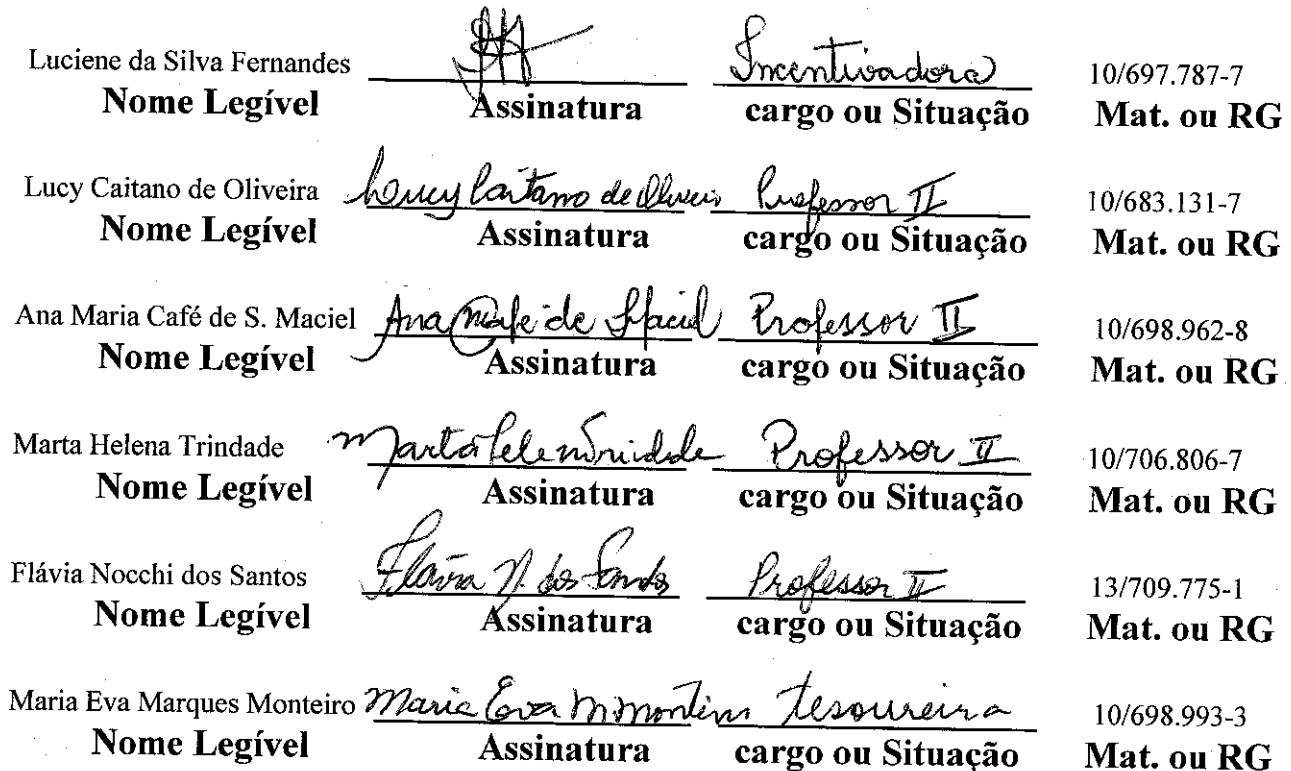 Luciene da Silva Fernandes Incentivadora 10/697.787-7
Nome Legível Assinatura cargo ou Situação Mat. ou RG
Lucy Caitano de Oliveira Lucy Caitano de Oliveira Professor II 10/683.131-7
Nome Legível Assinatura cargo ou Situação Mat. ou RG
Ana Maria Café de S. Maciel Ana Mcafe de S Maciel Professor II 10/698.962-8
Nome Legível Assinatura cargo ou Situação Mat. ou RG
Marta Helena Trindade Marta Helena Trindade Professor II 10/706.806-7
Nome Legível Assinatura cargo ou Situação Mat. ou RG
Flávia Nocchi dos Santos Flávia N. dos Santos Professor II 13/709.775-1
Nome Legível Assinatura cargo ou Situação Mat. ou RG
Maria Eva Marques Monteiro Maria Eva M Monteiro tesoureira 10/698.993-3
Nome Legível Assinatura cargo ou Situação Mat. ou RG